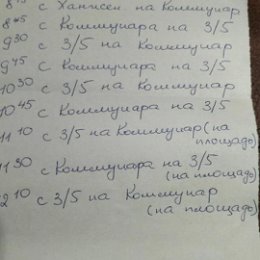 8 с Ханисел на Коммунар
8⁴⁵ с Коммунара на 3/5
9³⁰ с 3/5 на Коммунар
9⁴⁵ с Коммунара на 3/5
10³⁰ с 3/5 на Коммунар
10⁴⁵ с Коммунара на 3/5
11¹⁰ с 3/5 на Коммунар (на
площадь)
11³⁰ с Коммунара на 3/5
(на площадь)
2¹⁰ с 3/5 на Коммунар
(на площадь)